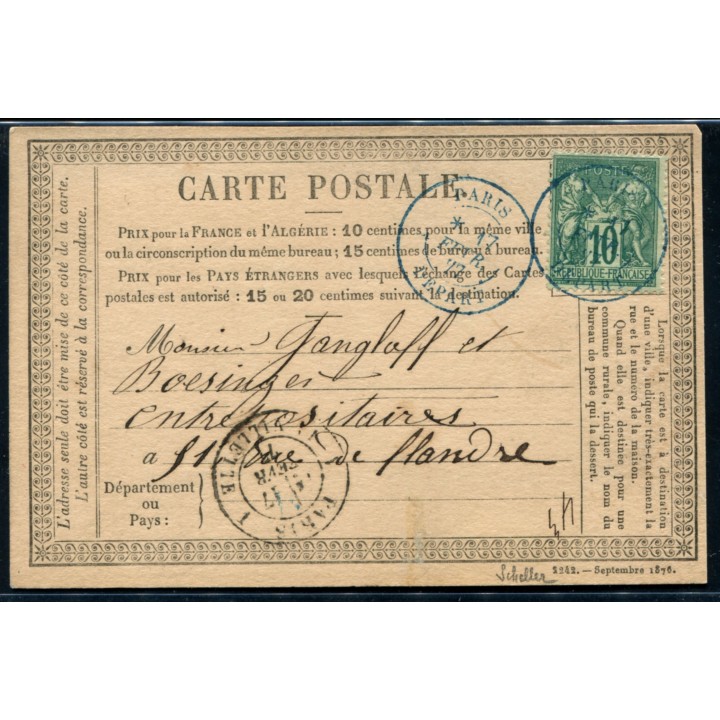 CARTE POSTALE
PRIX pour la FRANCE et l'ALGÉRIE : 10 centimes pour la même ville
ou la circonscription du même bureau ; 15 centimes de bureau à bureau.
PRIX pour les PAYS ÉTRANGERS avec lesquels l'échange des Cartes
postales est autorisé : 15 ou 20 centimes suivant la destination.
PARIS
17
FEVR
DÉPART
POSTES
10
RÉPUBLIQUE FRANÇAISE
Monsieur Gangloff et
Boesinger
entrepositaires
a 51 rue de Flandre
Département
ou
Pays :
PARIS
LA VILLETTE
17
FEVR
L'adresse seule doit être mise de ce côté de la carte.
L'autre côté est réservé à la correspondance.
Lorsque la carte est à destination
d'une ville, indiquer très-exactement la
rue et le numéro de la maison.
Quand elle est destinée pour une
commune rurale, indiquer le nom du
bureau de poste qui la dessert.
Scheller
2242. — Septembre 1876.